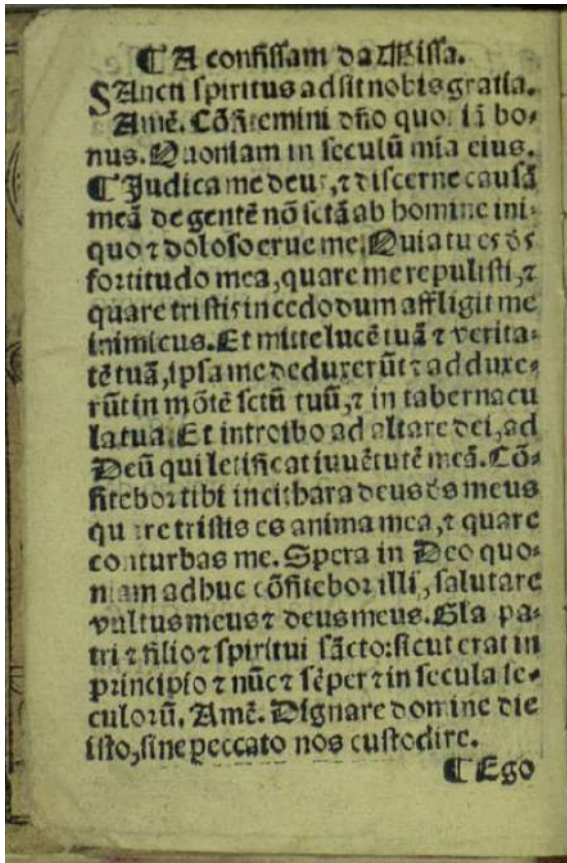 ¶ A confissam da Missa.
SAncti spiritus ad sit nobis gratia.
Amẽ. Cõfitemini dño quoniã bo-
nus. Quoniam in seculũ mia eius.
¶ Judica me deus, ⁊ discerne causã
meã de gentẽ nõ sctã ab homine ini-
quo ⁊ doloso erue me. Quia tu es ds
fortitudo mea, quare me repulisti, ⁊
quare tristis incedo dum affligit me
inimicus. Et mitte lucẽ tuã ⁊ verita-
tẽ tuã, ipsa me deduxerũt ⁊ adduxe-
rũt in mõtẽ sctũ tuũ, ⁊ in tabernacu
la tua. Et introibo ad altare dei, ad
Deũ qui letificat iuuẽtutẽ meã. Cõ-
fitebor tibi in cithara deus ds meus
quare tristis es anima mea, ⁊ quare
conturbas me. Spera in Deo quo-
niam adhuc cõfitebor illi, salutare
vultus meus ⁊ deus meus. Gla pa-
tri ⁊ filio ⁊ spiritui sãcto: sicut erat in
principio ⁊ nũc ⁊ sẽper ⁊ in secula se-
culorũ. Amẽ. Dignare domine die
isto, sine peccato nos custodire.
¶ Ego